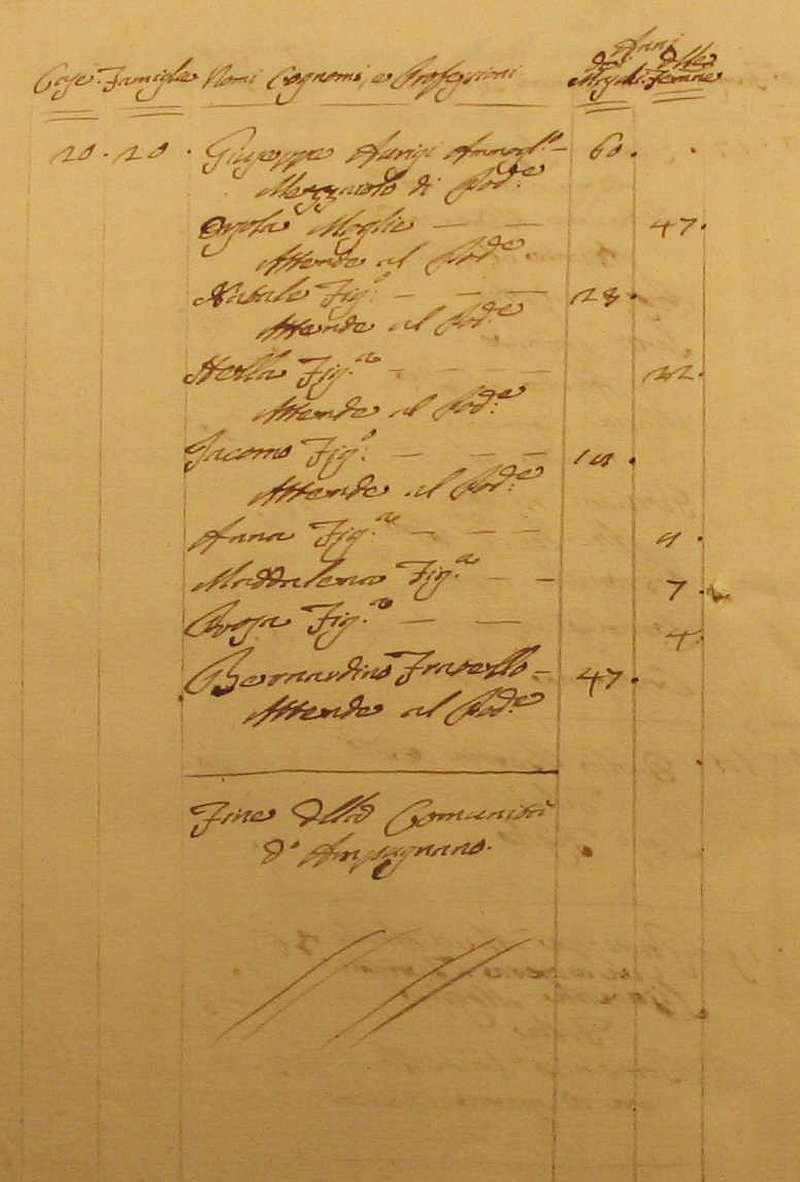 Anni
Case. Famiglie Nomi Cognomi, e Professioni dei Maschi. delle Femine
20. 20. Giuseppe Aurigi Ammogl.to — 60.
Mezzaiolo di Pod.e
Orsola Moglie — — — 47.
Attende al Pod.e
Natale Fig.o — — — 28.
Attende al Pod.e
Stella Fig.a — — — 22.
Attende al Pod.e
Jacomo Fig.o — — — 19.
Attende al Pod.e
Anna Fig.a — — — 9.
Maddalena Fig.a — — 7.
Rosa Fig.a — — 4.
Bernardino Fratello — 47.
Attende al Pod.e
Fine della Comunità
d'Ampugnano.